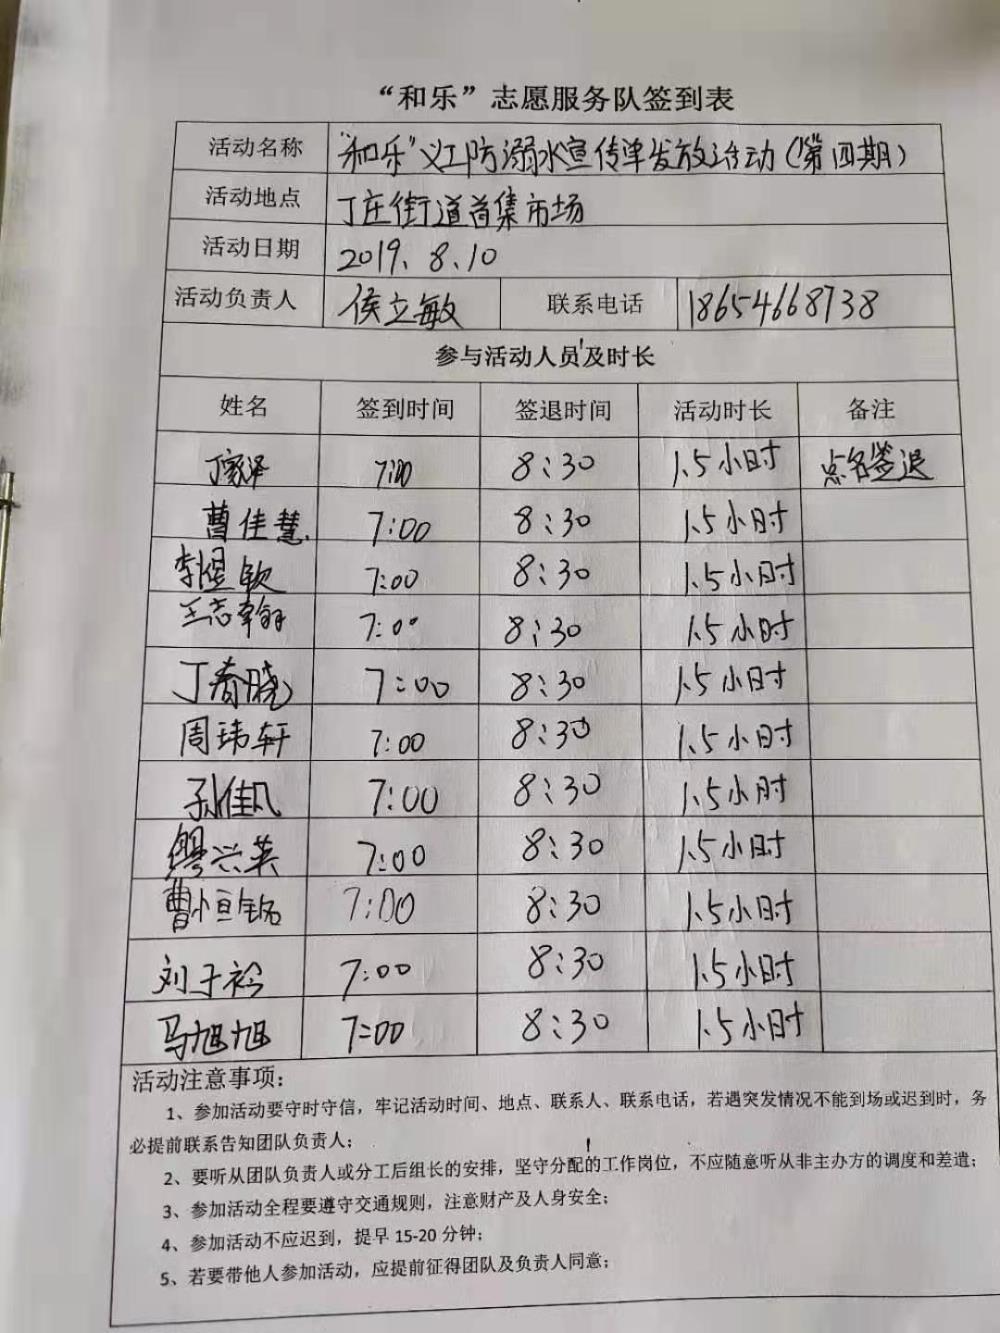 “和乐”志愿服务队签到表
活动名称 “和乐”义工防溺水宣传单发放活动（第四期）
活动地点 丁庄街道首集市场
活动日期 2019.8.10
活动负责人 侯立敏 联系电话 18654668738
参与活动人员及时长
姓名 签到时间 签退时间 活动时长 备注
丁家泽 7:00 8:30 1.5小时 点名签退
曹佳慧 7:00 8:30 1.5小时
李煜钦 7:00 8:30 1.5小时
王志翰 7:00 8:30 1.5小时
丁春晓 7:00 8:30 1.5小时
周玮轩 7:00 8:30 1.5小时
孙佳凡 7:00 8:30 1.5小时
缪兴英 7:00 8:30 1.5小时
曹恒铭 7:00 8:30 1.5小时
刘子衿 7:00 8:30 1.5小时
马旭旭 7:00 8:30 1.5小时
活动注意事项：
1、参加活动要守时守信，牢记活动时间、地点、联系人、联系电话，若遇突发情况不能到场或迟到时，务
必提前联系告知团队负责人；
2、要听从团队负责人或分工后组长的安排，坚守分配的工作岗位，不应随意听从非主办方的调度和差遣；
3、参加活动全程要遵守交通规则，注意财产及人身安全；
4、参加活动不应迟到，提早 15-20 分钟；
5、若要带他人参加活动，应提前征得团队及负责人同意；